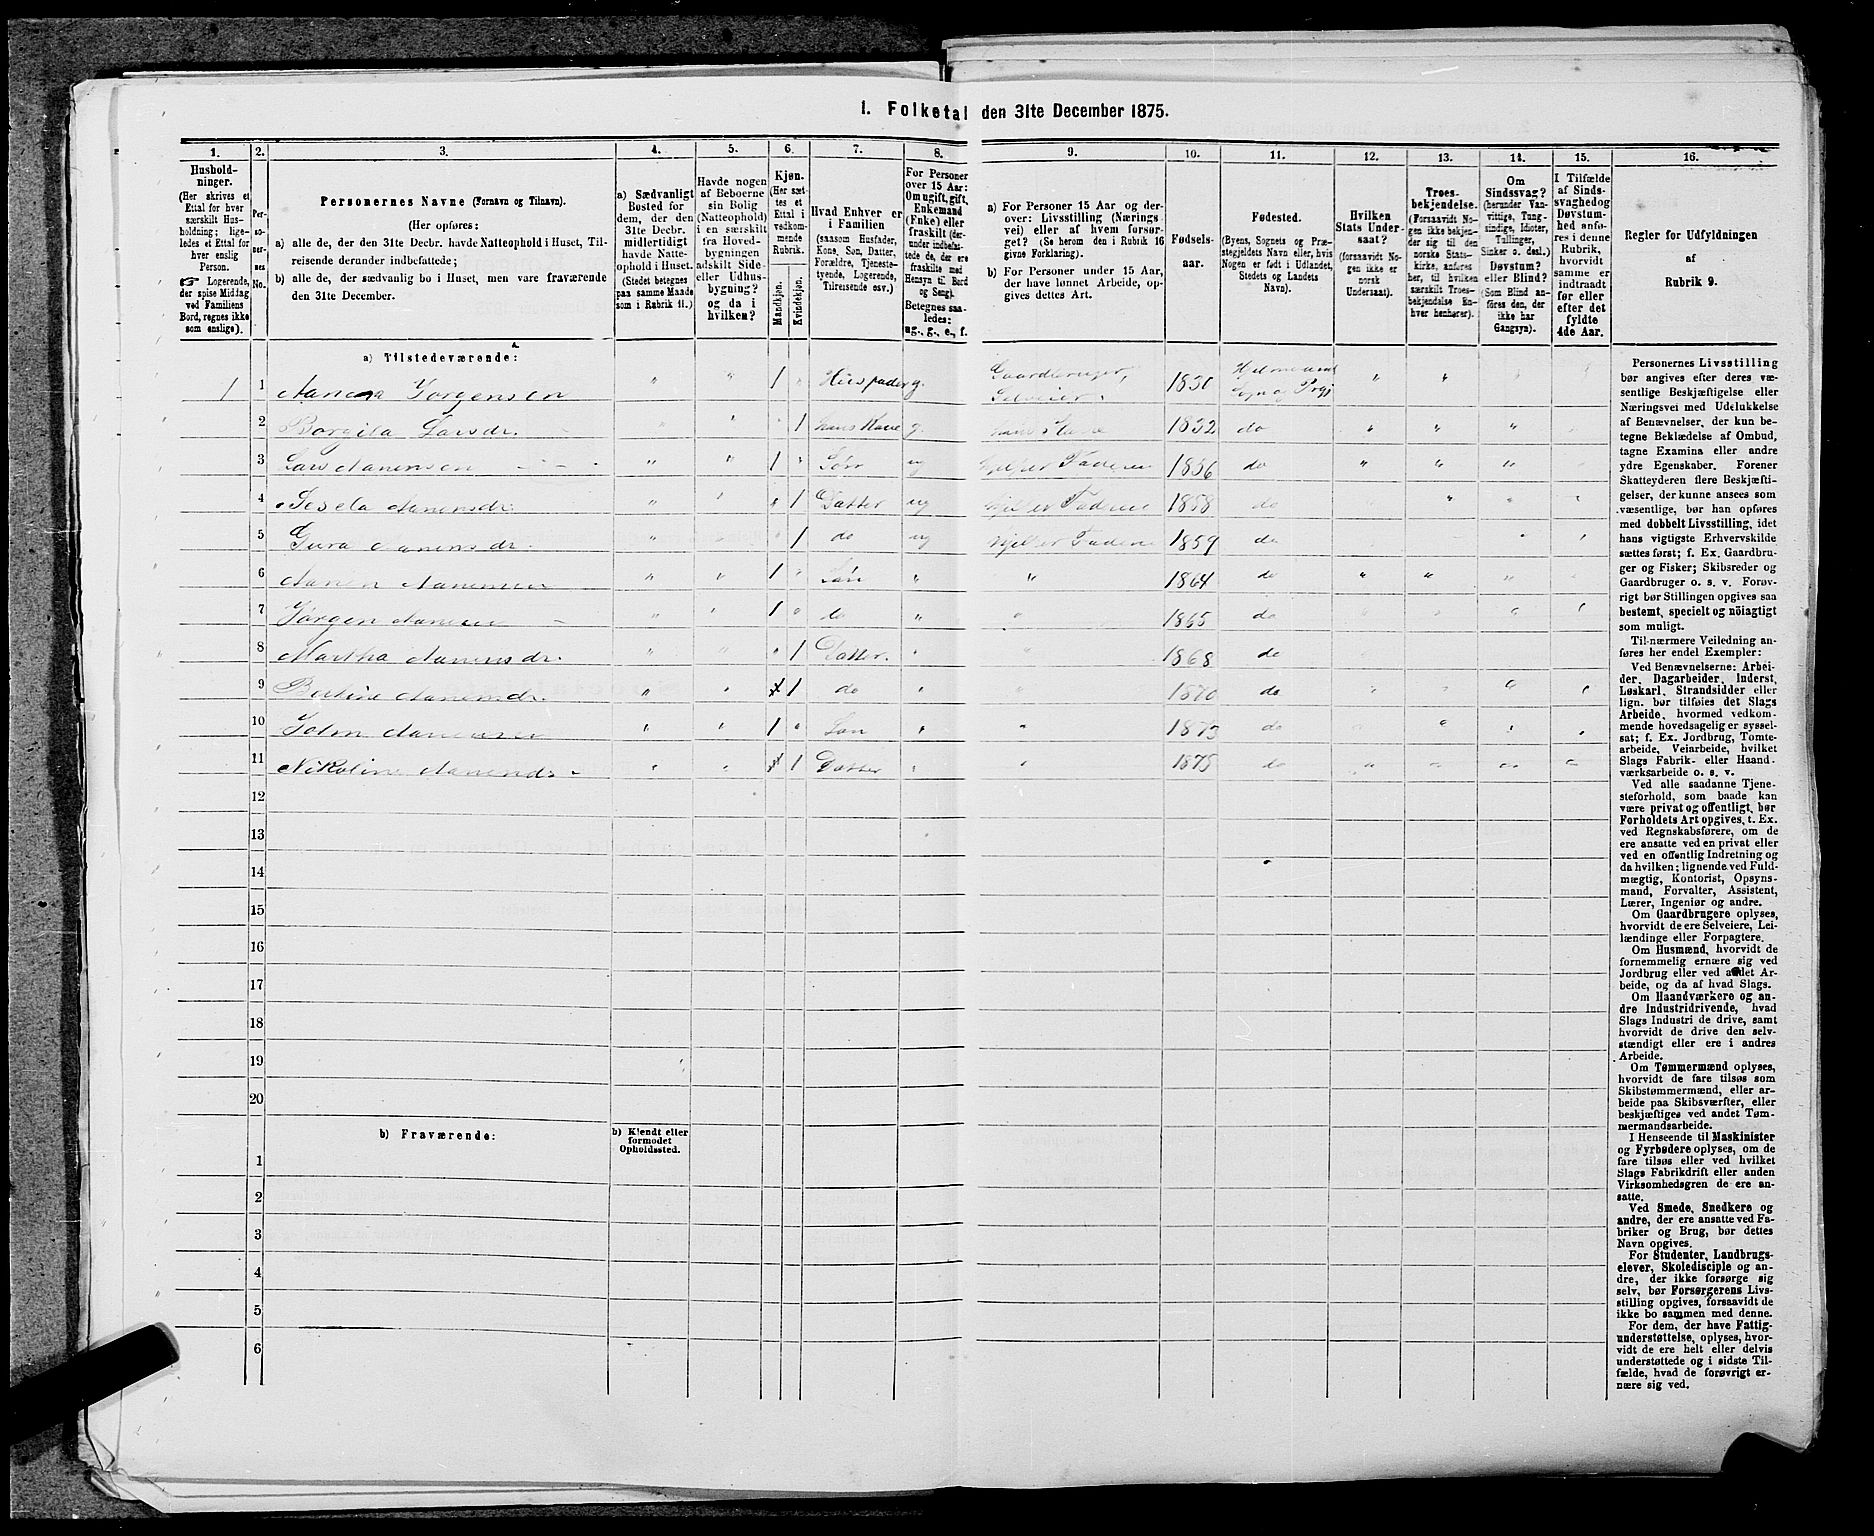 1. Folketal den 31te December 1875.
1. 2. 3. 4. 5. 6. 7. 8. 9. 10. 11. 12. 13. 14. 15. 16.
Hushold-
ninger.
(Her skrives et
Ettal for hver
særskilt Hus-
holdning; lige-
ledes et Ettal for
hver enslig
Person.
☛ Logerende,
der spise Middag
ved Familiens
Bord, regnes ikke
som enslige).
Per-
so-
ner-
nes
No.
Personernes Navne (Fornavn og Tilnavn).
(Her opføres:
a) alle de, der den 31te Decbr. havde Natteophold i Huset, Til-
reisende derunder indbefattede;
b) alle de, der sædvanlig bo i Huset, men vare fraværende
den 31te December.
a) Sædvanligt
Bosted for
dem, der den
31te Decbr.
midlertidigt
havde Natte-
ophold i Huset.
(Stedet betegnes
paa samme Maade
som i Rubrik 11.)
Havde nogen
af Beboerne
sin Bolig
(Natteophold)
i en særskilt
fra Hoved-
bygningen
adskilt Side-
eller Udhus-
bygning?
og da i
hvilken?
Kjøn.
(Her sæt-
tes et
Ettal i
vedkom-
mende
Rubrik.
Mandkjøn.
Kvindekjøn.
Hvad Enhver er
i Familien
(saasom Husfader,
Kone, Søn, Datter,
Forældre, Tjeneste-
tyende, Logerende,
Tilreisende osv.)
For Personer
over 15 Aar:
Om ugift, gift,
Enkemand
(Enke) eller
fraskilt (der-
under indbefat-
tede de, der ere
fraskilte med
Hensyn til Bord
og Seng).
Betegnes saa-
ledes:
ug., g., e., f.
a) For Personer 15 Aar og der-
over: Livsstilling (Nærings-
vei) eller af hvem forsør-
get? (Se herom den i Rubrik 16
givne Forklaring).
b) For Personer under 15 Aar,
der have lønnet Arbeide, op-
gives dettes Art.
Fødsels-
aar.
Fødested.
(Byens, Sognets og Præ-
stegjeldets Navn eller, hvis
Nogen er født i Udlandet,
Stedets og Landets
Navn).
Hvilken
Stats Under-
saat?
(forsaavidt No-
gen ikke er
norsk
Undersaat).
Troes-
bekjendelse.
(Forsaavidt No-
gen ikke bekjen-
der sig til den
norske Stats-
kirke, anføres
her, til hvilken
særskilt Troes-
bekjendelse En-
hver henhører).
Om
Sindssvag?
(herunder Van-
vittige, Tung-
sindige, Idioter,
Tullinger,
Sinker o. desl.)
Døvstum?
eller Blind?
(Som Blind an-
føres den, der
ikke har
Gangsyn).
I Tilfælde
af Sinds-
svaghed og
Døvstum-
hed anfø-
res i denne
Rubrik,
hvorvidt
samme er
indtraadt
før eller
efter det
fyldte
4de Aar.
Regler for Udfyldningen
af
Rubrik 9.
a) Tilstedeværende:
1 1 Jørgensen " " 1 " Husfader g. Gaardbruger, Selveier. 1830
2 Larsdr. " " " 1 hans Kone g. 1832 do " " "
3 Lars " " 1 " Søn ug 1856 do " " "
4 " " " 1 Datter ug 1858 do
5 " " " 1 do ug 1859 do
6 " " 1 " Søn " " 1864 do " " "
7 Jørgen " " 1 " do " " 1865 do
8 Martha " " " 1 Datter. " " 1868 do
9 " " 1 do " " 1870 do
10 " " 1 " Søn " " 1873 do
11 Nikoline " " 1 Datter " " 1875 do " " " "
12
13
14
15
16
17
18
19
20
b) Fraværende:
b) Kjendt eller
formodet
Opholdssted.
1
2
3
4
5
6
Personernes Livsstilling
bør angives efter deres væ-
sentlige Beskjæftigelse eller
Næringsvei med Udelukkelse
af Benævnelser, der kun be-
tegne Beklædelse af Ombud,
tagne Examina eller andre
ydre Egenskaber. Forener
Skatteyderen flere Beskjæfti-
gelser, der kunne ansees som
væsentlige, bør han opføres
med dobbelt Livsstilling, idet
hans vigtigste Erhvervskilde
sættes først; f. Ex. Gaardbru-
ger og Fisker; Skibsreder og
Gaardbruger o. s. v. Forøv-
rigt bør Stillingen opgives saa
bestemt, specielt og nöiagtigt
som muligt.
Til nærmere Veiledning an-
føres her endel Exempler:
Ved Benævnelserne: Arbei-
der, Dagarbeider, Inderst,
Løskarl, Strandsidder eller
lign. bør tilføies det Slags
Arbeide, hvormed vedkom-
mende hovedsagelig er syssel-
sat; f. Ex. Jordbrug, Tomte-
arbeide, Veiarbeide, hvilket
Slags Fabrik- eller Haand-
værksarbeide o. s. v.
Ved alle saadanne Tjene-
steforhold, som baade kan
være privat og offentligt, bør
Forholdets Art opgives, t. Ex.
ved Regnskabsførere, om de
ere ansatte ved en privat eller
ved en offentlig Indretning og
da hvilken; lignende ved Fuld-
mægtig, Kontorist, Opsyns-
mand, Forvalter, Assistent,
Lærer, Ingeniør og andre.
Om Gaardbrugere oplyses,
hvorvidt de ere Selveiere, Lei-
lændinge eller Forpagtere.
Om Husmænd, hvorvidt de
fornemmelig ernære sig ved
Jordbrug eller ved andet Ar-
beide, og da af hvad Slags.
Om Haandværkere og an-
dre Industridrivende, hvad
Slags Industri de drive, samt
hvorvidt de drive den selv-
stændigt eller ere i andres
Arbeide.
Om Tømmermænd oplyses,
hvorvidt de fare tilsøs som
Skibstømmermænd, eller ar-
beide paa Skibsværfter, eller
beskjæftiges ved andet Tøm-
mermandsarbeide.
I Henseende til Maskinister
og Fyrbødere oplyses, om de
fare tilsøs eller ved hvilket
Slags Fabrikdrift eller anden
Virksomhedsgren de ere an-
satte.
Ved Smede, Snedkere og
andre, der ere ansatte ved Fa-
briker og Brug, bør dettes
Navn opgives.
For Studenter, Landbrugs-
elever, Skoledisciple og an-
dre, der ikke forsørge sig
selv, bør Forsørgerens Livs-
stilling opgives, forsaavidt de
ikke bo sammen med denne.
For dem, der have Fattig-
understøttelse, oplyses, hvor-
vidt de ere helt eller delvis
understøttede og i sidste Til-
fælde, hvad de forøvrigt er-
nære sig ved.